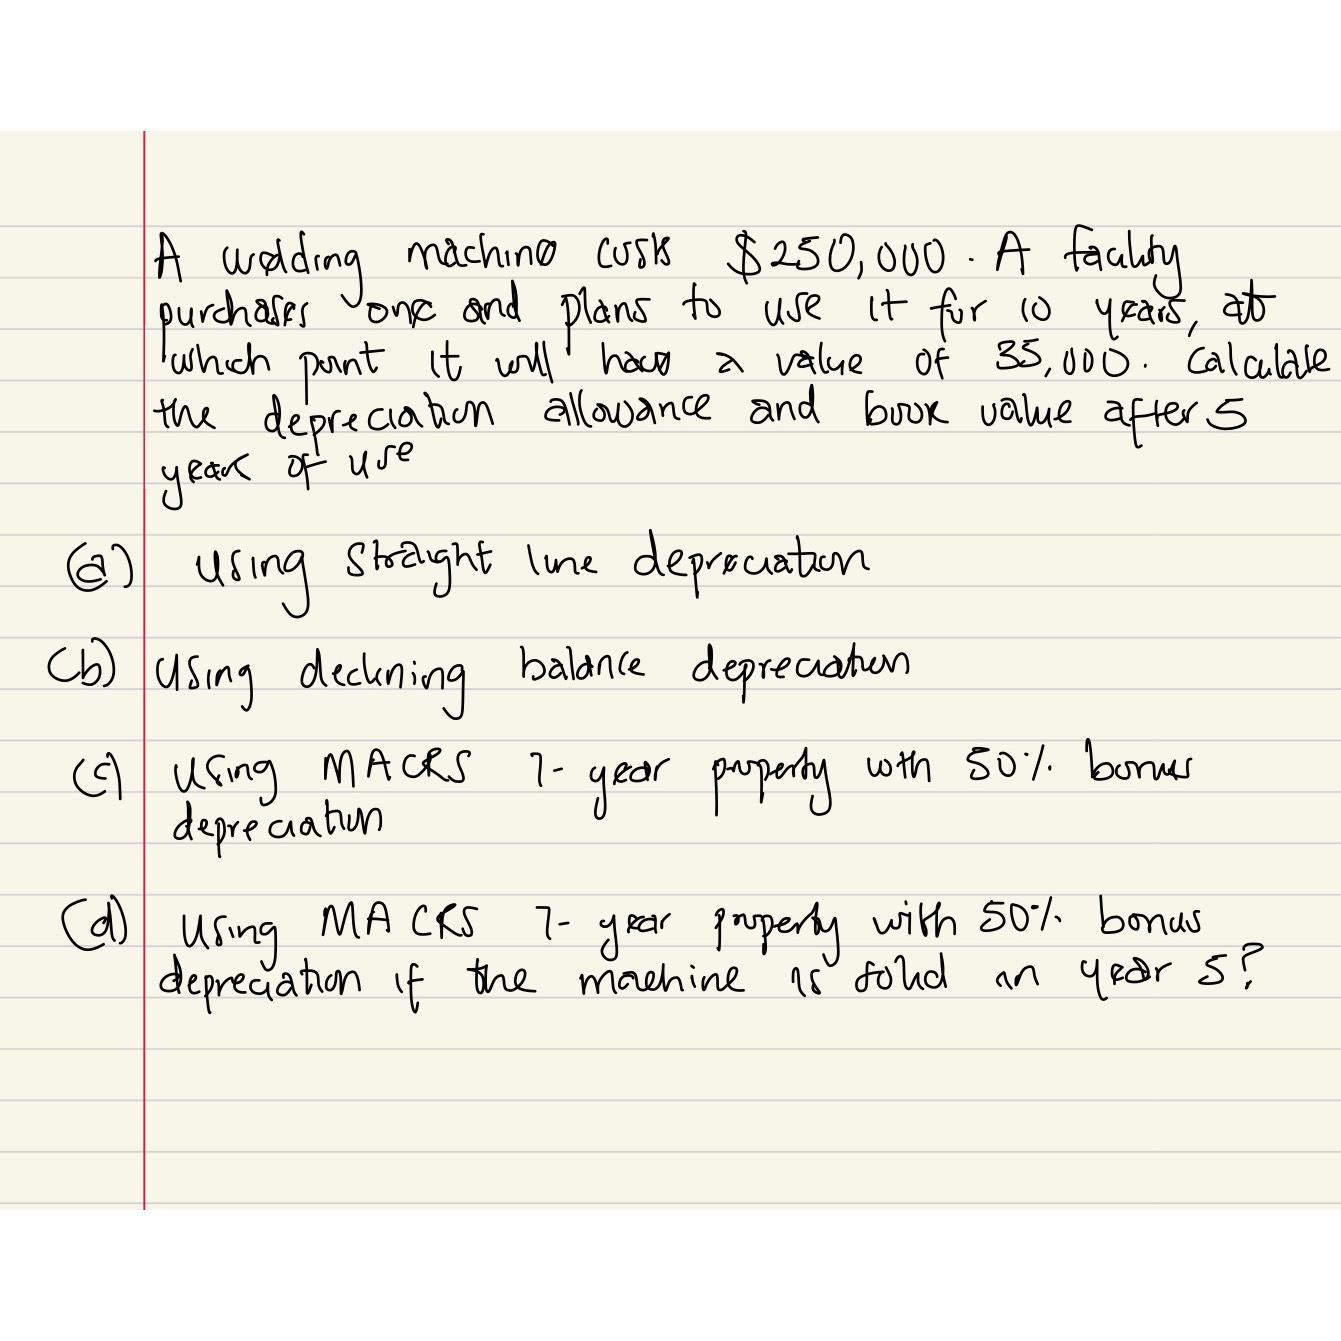 A welding machine costs $250,000. A facility
purchases one and plans to use it for 10 years, at
which point it will have a value of 35,000. Calculate
the depreciation allowance and book value after 5
years of use
(a) Using Straight line depreciation
(b) Using declining balance depreciation
(c) Using MACRS 7-year property with 50% bonus
depreciation
(d) Using MACRS 7-year property with 50% bonus
depreciation if the machine is sold in year 5?